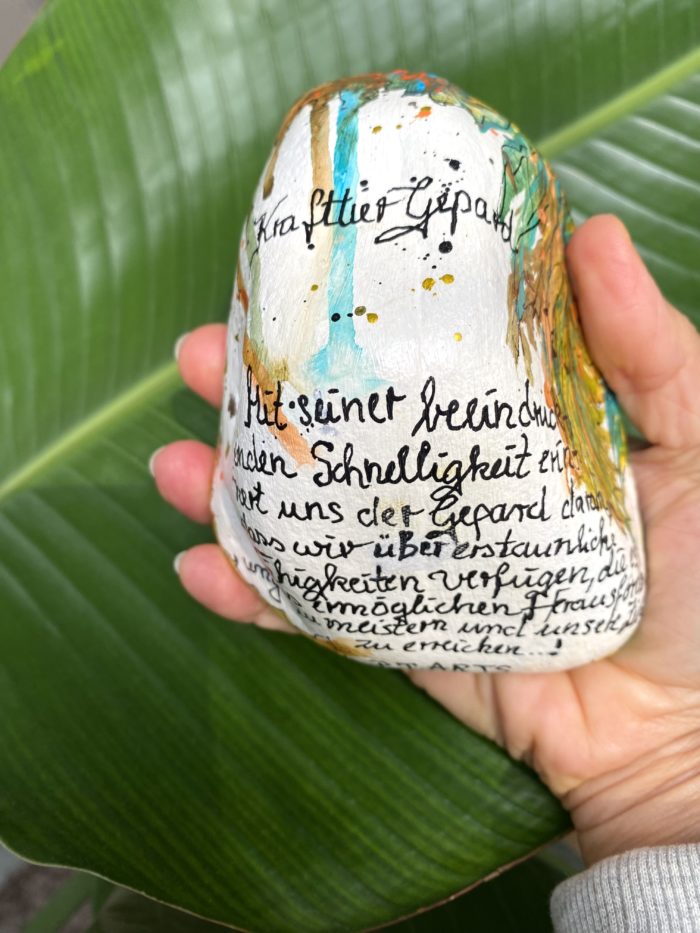 Krafttier Gepard
Mit seiner beeindruc
enden Schnelligkeit erin
nert uns der Gepard daran
dass wir über erstaunliche
Fähigkeiten verfügen, die
ermöglichen Herausfor
zu meistern und unsere
zu erreichen...!
ARTS